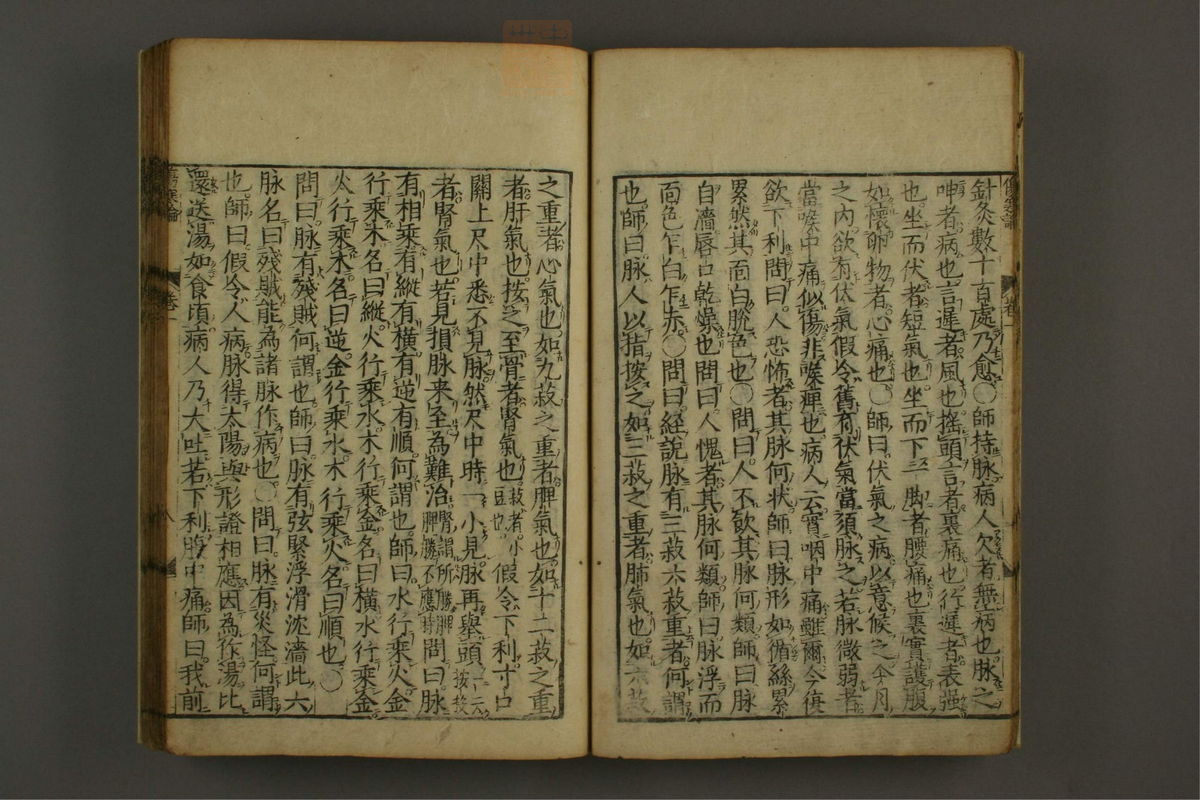 傷寒論
卷一
針灸數十百處乃愈○師持脉病人欠者無病也脉之
呻者病也言遲者風也搖頭言者裏痛也行遲者表强
也坐而伏者短氣也坐而下一脚者腰痛也裏實護腹
如懷卵物者心痛也○師曰伏氣之病以意候之今月
之內欲有伏氣假令舊有伏氣當須脉之若脉微弱者
當喉中痛似傷非喉痺也病人云實咽中痛雖爾今復
欲下利問曰人恐怖者其脉何狀師曰脉形如循絲累
累然其面白脫色也○問曰人不飲其脉何類師曰脉
自濇唇口乾燥也問曰人愧者其脉何類師曰脉浮而
面色乍白乍赤○問曰經說脉有三菽六菽重者何謂
也師曰脉人以指按之如三菽之重者肺氣也如六菽
之重者心氣也如九菽之重者脾氣也如十二菽之重
者肝氣也按之至骨者腎氣也菽者小豆也假令下利寸口
關上尺中悉不見脉然尺中時一小見脉再舉頭一云按投
者腎氣也若見損脉来至為難治腎謂所勝脾脾勝不應時問曰脉
有相乘有縱有橫有逆有順何謂也師曰水行乘火金
行乘木名曰縱火行乘水木行乘金名曰橫水行乘金
火行乘木名曰逆金行乘水木行乘火名曰順也○
問曰脉有殘賊何謂也師曰脉有弦緊浮滑沈濇此六
脉名曰殘賊能為諸脉作病也○問曰脉有災怪何謂
也師曰假令人病脉得太陽與形證相應因為作湯比
還送湯如食頃病人乃大吐若下利腹中痛師曰我前
卷一
八